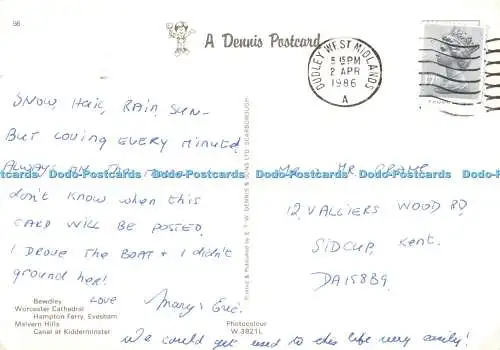 56.
A Dennis Postcard
DUDLEY WEST MIDLANDS
5 15 PM
2 APR
1986
A
SNOW, Hail, RAIN, SUN-
But loving EVERY minute!
ALWAYS ON THE
don't know when this
CARD WILL BE POSTED.
I DROVE THE BOAT & I didn't
ground her!
LOVE Mary & Eric.
We could get used to this life very easily!
MR.
12, VALLIERS WOOD RD
SIDCUP, Kent.
DA15 8B9.
Printed & Published by E. T. W. DENNIS & SONS LTD. SCARBOROUGH
Bewdley
Worcester Cathedral
Hampton Ferry, Evesham
Malvern Hills
Canal at Kidderminster
Photocolour
W.3821L
Dodo-Postcards Dodo-Postcards Dodo-Postcards Dodo-Postcards Dodo-Postcards